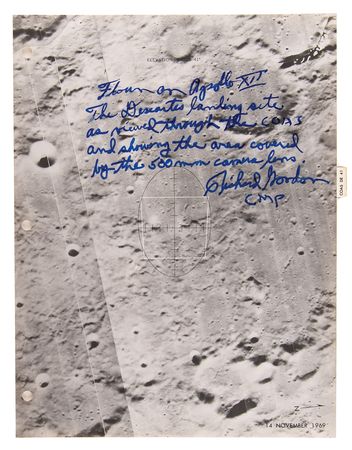 ELEVATION 41°
Flown on Apollo XII
The Descartes landing site
as viewed through the COAS
and showing the area covered
by the 500mm camera lens.
Richard Gordon
CMP
COAS DE 41
Z
14 NOVEMBER 1969